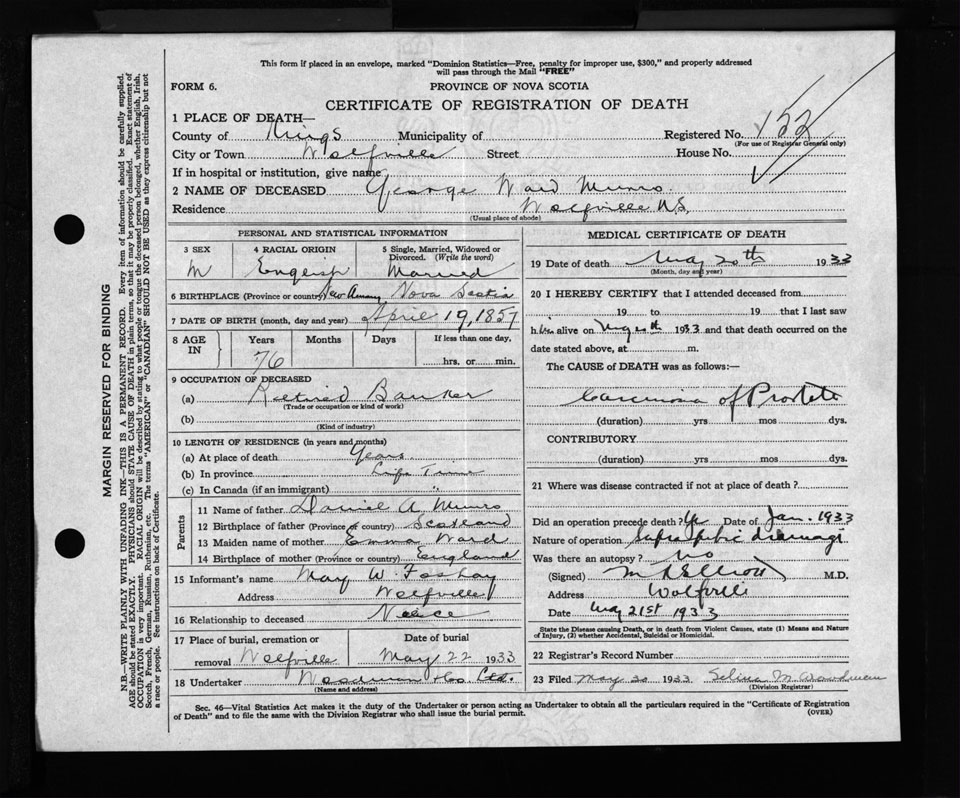 This form if placed in an envelope, marked "Dominion Statistics—Free, penalty for improper use, $300," and properly addressed
will pass through the Mail "FREE"
FORM 6. PROVINCE OF NOVA SCOTIA
CERTIFICATE OF REGISTRATION OF DEATH
1 PLACE OF DEATH—
County of Kings Municipality of Registered No. 152
(For use of Registrar General only)
City or Town Wolfville Street House No.
If in hospital or institution, give name
2 NAME OF DECEASED George Ward Munro.
Residence Wolfville N.S.
(Usual place of abode)
PERSONAL AND STATISTICAL INFORMATION
3 SEX 4 RACIAL ORIGIN 5 Single, Married, Widowed or
Divorced. (Write the word)
M English Married
6 BIRTHPLACE (Province or country) New Annan Nova Scotia
7 DATE OF BIRTH (month, day and year) April 19, 1857
8 AGE IN Years Months Days If less than one day,
76 hrs. or min.
9 OCCUPATION OF DECEASED
(a) Retired Banker
(Trade or occupation or kind of work)
(b)
(Kind of industry)
10 LENGTH OF RESIDENCE (in years and months)
(a) At place of death Years
(b) In province Life Time
(c) In Canada (if an immigrant) "
Parents
11 Name of father Daniel A. Munro
12 Birthplace of father (Province or country) Scotland
13 Maiden name of mother Emma Ward
14 Birthplace of mother (Province or country) England
15 Informant's name May W. Foshay
Address Wolfville
16 Relationship to deceased Neice
17 Place of burial, cremation or Date of burial
removal Wolfville May 22 1933
18 Undertaker Woodman & Co. Ltd.
(Name and address)
MEDICAL CERTIFICATE OF DEATH
19 Date of death May 20th 1933
(Month, day and year)
20 I HEREBY CERTIFY that I attended deceased from
19 to 19 that I last saw
h im alive on May 20th 1933 and that death occurred on the
date stated above, at m.
The CAUSE of DEATH was as follows:—
Carcinoma of Prostate
(duration) yrs mos dys.
CONTRIBUTORY
(duration) yrs mos dys.
21 Where was disease contracted if not at place of death?
Did an operation precede death? Yes Date of Jan. 1933
Nature of operation Suprapubic drainage
Was there an autopsy? no
(Signed) M R Elliott M.D.
Address Wolfville
Date May 21st 1933
State the Disease causing Death, or in death from Violent Causes, state (1) Means and Nature
of Injury, (2) whether Accidental, Suicidal or Homicidal.
22 Registrar's Record Number
23 Filed May 30 1933 Selina M. Woodman
(Division Registrar)
Sec. 46—Vital Statistics Act makes it the duty of the Undertaker or person acting as Undertaker to obtain all the particulars required in the "Certificate of Registration
of Death" and to file the same with the Division Registrar who shall issue the burial permit. (OVER)
MARGIN RESERVED FOR BINDING
N.B.—WRITE PLAINLY WITH UNFADING INK—THIS IS A PERMANENT RECORD. Every item of information should be carefully supplied.
AGE should be stated EXACTLY. PHYSICIANS should STATE CAUSE OF DEATH in plain terms, so that it may be properly classified. Exact statement of
OCCUPATION is very important. RACIAL ORIGIN will be described by stating to what people or tongue the deceased person belonged, whether English, Irish,
Scotch, French, German, Russian, Ruthenian, etc. The terms "AMERICAN" or "CANADIAN" SHOULD NOT BE USED as they express citizenship but not
a race or people. See instructions on back of Certificate.